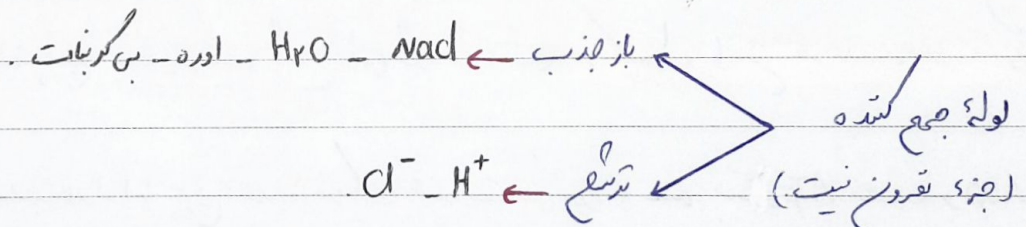 لولهٔ جمع کننده
(جزء نفرون نیست.)
باز جذب ← NaCl - H۲O - اوره - بی کربنات.
ترشح ← H⁺ - Cl⁻